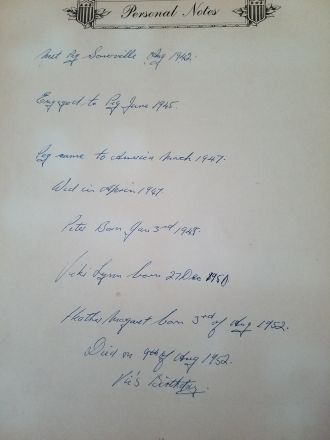 Personal Notes
Met Peg Aug 1942.
Engaged to Peg June 1945.
Peg came to America March 1947.
Wed in April 1947
Peter Born Jan 3rd 1948.
Vicki Lynn born 27 Dec 1950
Heather Margaret born 3rd of Aug 1952.
Died on 9th of Aug 1952.
Vic's Birthday.